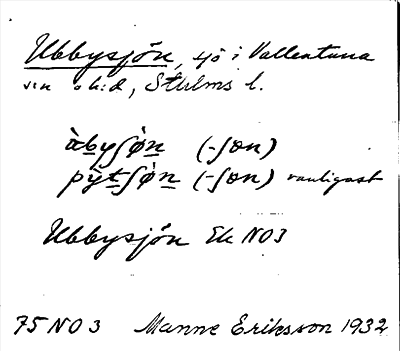 Ubbysjön, sjö i Vallentuna
sn o h:d, Sthlms l.
àbysʃø̀n (-ʃøn)
pỳtʃø̀n (-ʃøn) vanligast
Ubbysjön Ek NO3
75 NO 3 Manne Eriksson 1932